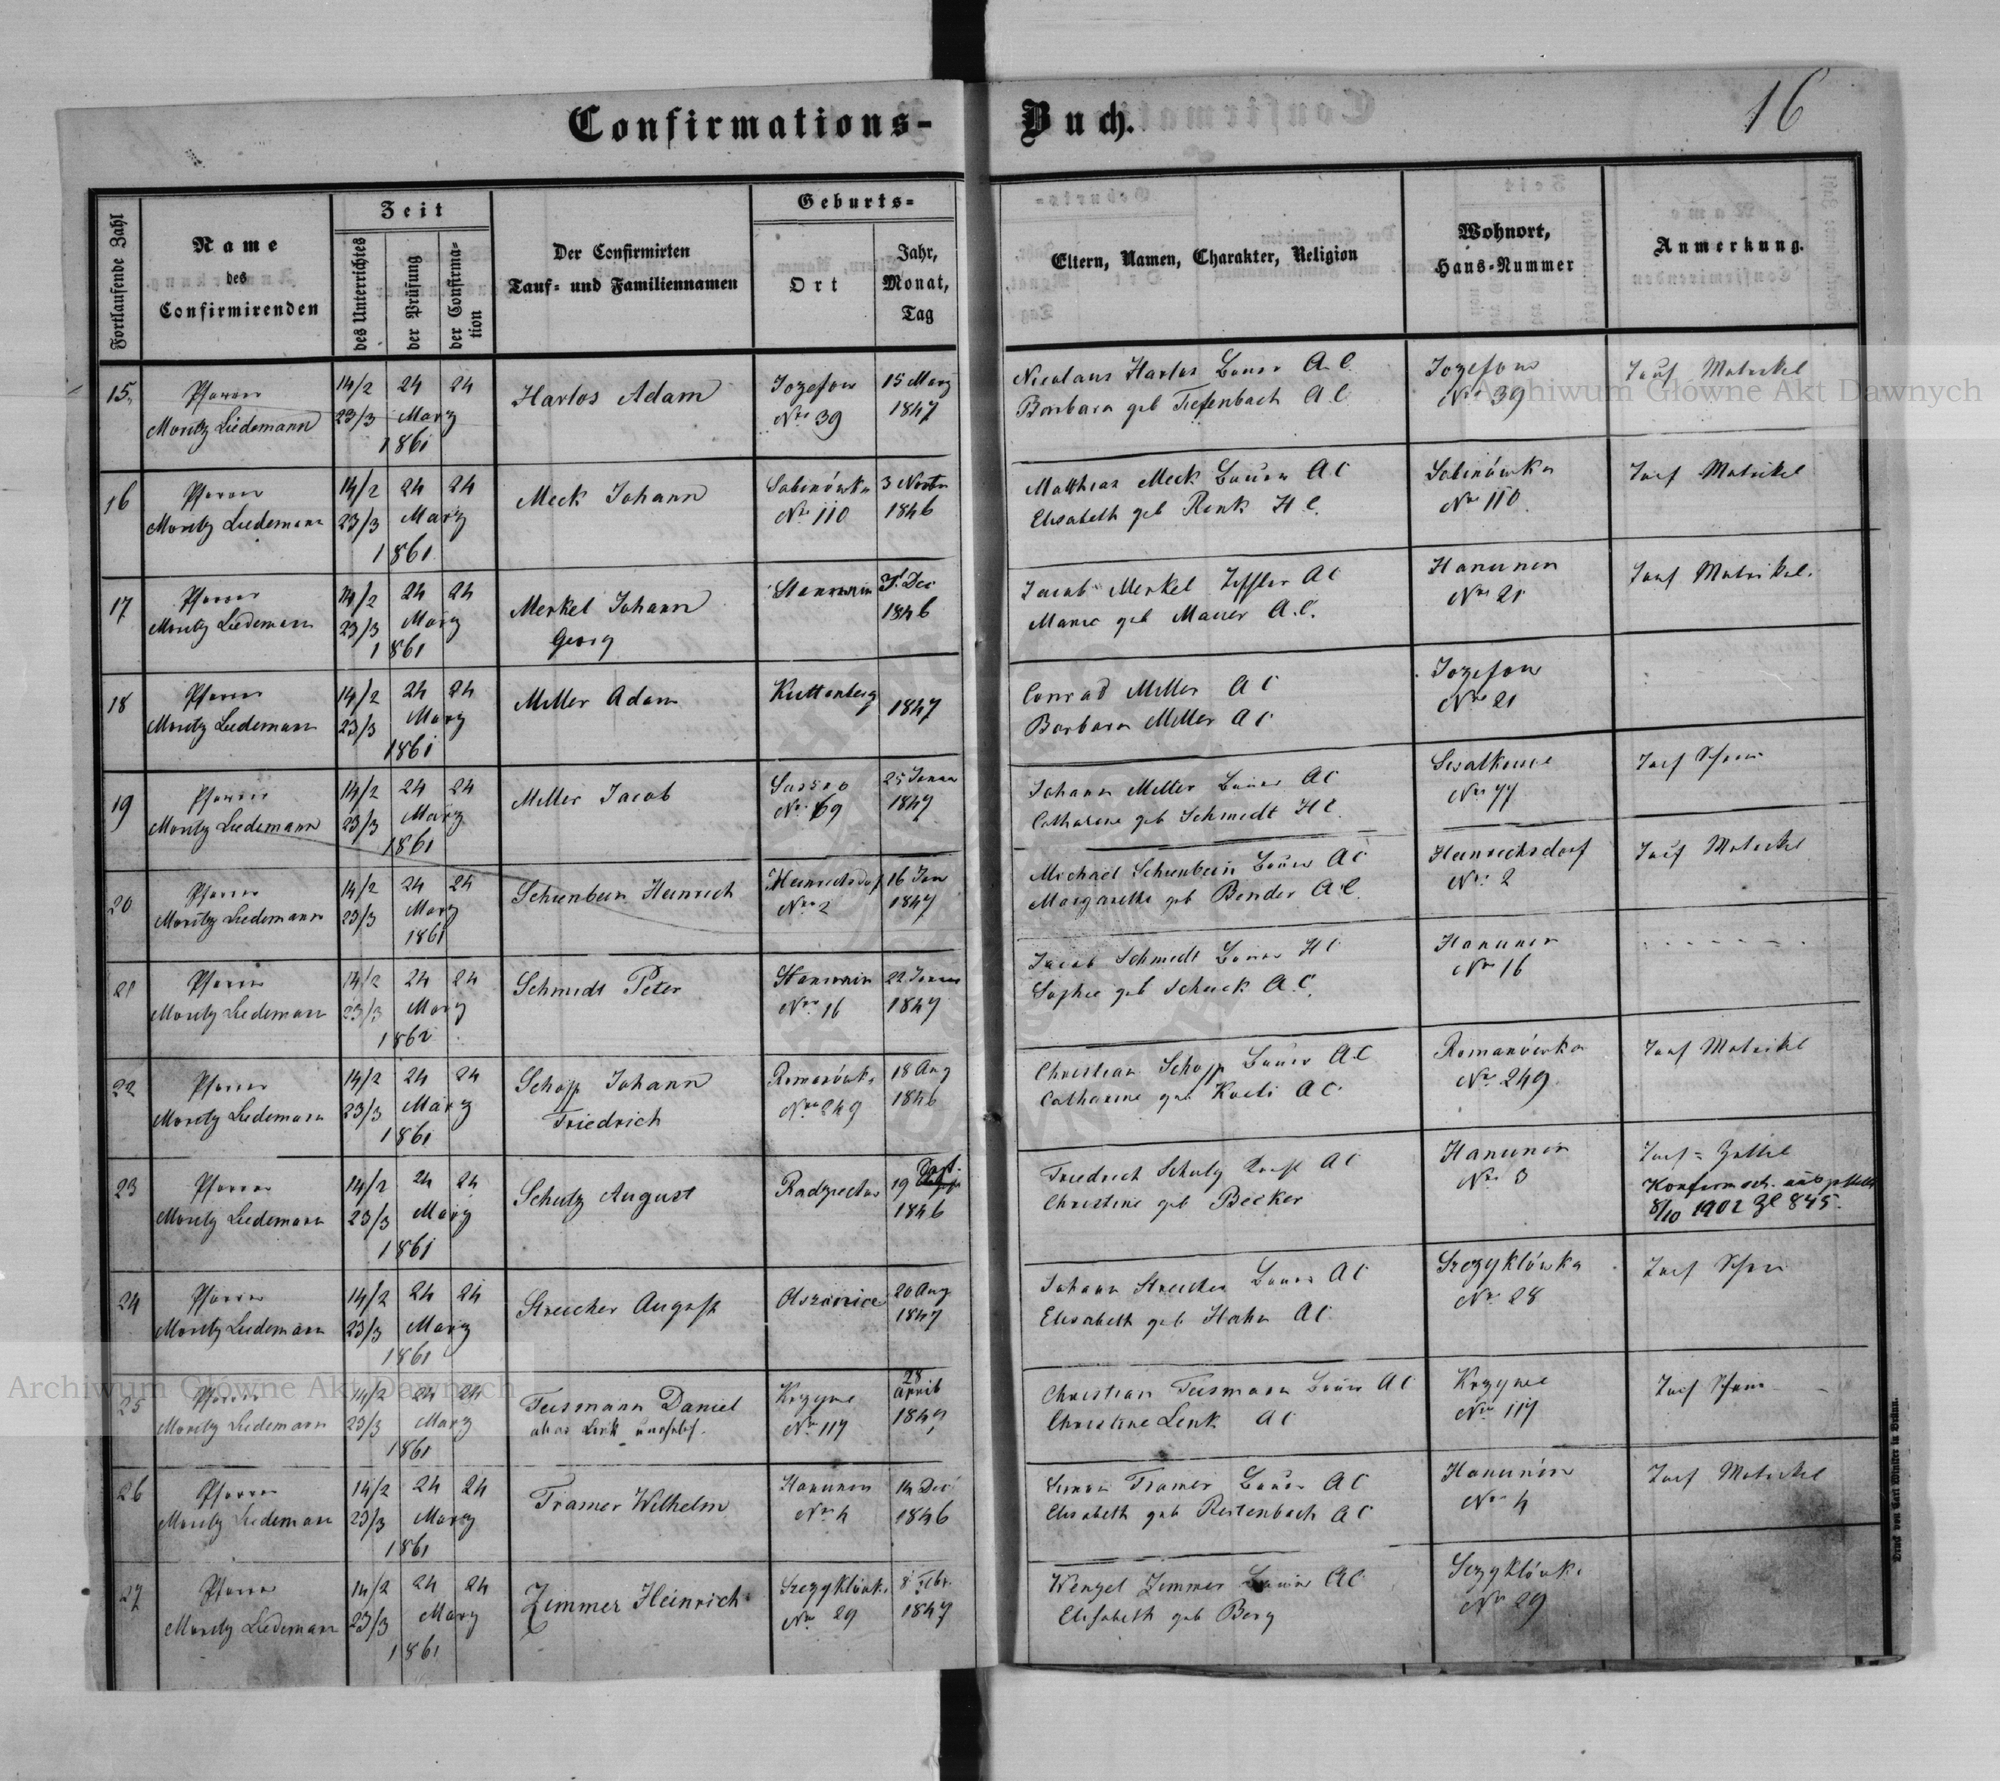 Confirmations-
Buch.
16
Fortlaufende Zahl
Name
des
Confirmirenden
Zeit
des Unterrichtes
der Prüfung
der Confirma-
tion
Der Confirmirten
Tauf- und Familiennamen
Geburts-
Ort
Jahr,
Monat,
Tag
Eltern, Namen, Charakter, Religion
Wohnort,
Haus-Nummer
Anmerkung.
15, Pfarrer 14/2 24 24 Harlos Adam Jozefow 15 März Nicolaus Harlos Bauer A.C. Jozefow Tauf Matrikel
Moritz Liedemann 23/3 März No 39 1847 Barbara geb Tiefenbach A C No 39
1861
16 Pfarrer 14/2 24 24 Meck Johann Sabinówka 3 Novbr Matthias Meck Bauer A C Sabinówka Tauf Matrikel
Moritz Liedemann 23/3 März No 110 1846 Elisabeth geb Renk H C. No 110
1861
17 Pfarrer 14/2 24 24 Merkel Johann Dec Jacob Merkel A C Hanunin Tauf Matrikel.
Moritz Liedemann 23/3 März Georg 1846 geb Mauer A.C. No 21
1861
18 Pfarrer 14/2 24 24 Miller Adam Kuttenberg 1847 Conrad Miller A C Jozefow
Moritz Liedemann 23/3 März Barbara Miller A C No 21
1861
19 Pfarrer 14/2 24 24 Miller Jacob Sassow 25 Januar Johann Miller Bauer A C Tauf Schein
Moritz Liedemann 23/3 März No 69 1847 Catharine geb Schmidt H C. No 77
1861
20 Pfarrer 14/2 24 24 Schienbein Heinrich Heinrichsdorf 16 Jan Michael Schienbein Bauer A C Heinrichsdorf Tauf Matrikel
Moritz Liedemann 23/3 März No 2 1847 Margaretha geb Bender A C. No 2
1861
21 Pfarrer 14/2 24 24 Schmidt Peter Hanunin 22 Januar Jacob Schmidt Bauer H C Hanunin
Moritz Liedemann 23/3 März No 16 1847 Sophie geb Schuck A C. No 16
1862
22 Pfarrer 14/2 24 24 Schopp Johann Romanówka 18 Aug Christian Schopp Bauer A C Romanówka Tauf Matrikel
Moritz Liedemann 23/3 März Friedrich No 249 1846 Catharine geb A C No 249
1861
23 Pfarrer 14/2 24 24 Schutz August 19 Sept. Friedrich Schutz A C Hanunin Tauf-Zettel
Moritz Liedemann 23/3 März 1846 Christine geb Becker No 3 Konfirmsch. ausgestellt
1861 8/10 1902 Zl 845.
24 Pfarrer 14/2 24 24 Streicher August 20 Aug Johann Streicher Bauer A C Szczyklówka Tauf Schein
Moritz Liedemann 23/3 März 1847 Elisabeth geb Hahn A C No 28
1861
25 Pfarrer 14/2 24 24 Teismann Daniel Krzywe 28 April Christian Teismann Bauer A C Krzywe Tauf Schein
Moritz Liedemann 23/3 März alias Lenk unehel. No 117 1847 Christine Lenk A C No 117
1861
26 Pfarrer 14/2 24 24 Tramer Wilhelm Hanunin 14 Dec Simon Tramer Bauer A C Hanunin Tauf Matrikel
Moritz Liedemann 23/3 März No 4 1846 Elisabeth geb Reitenbach A C No 4
1861
27 Pfarrer 14/2 24 24 Zimmer Heinrich Szczyklówka 8 Febr. Wenzel Zimmer Bauer A C Szczyklówka
Moritz Liedemann 23/3 März No 29 1847 Elisabeth geb Berg No 29
1861
Druck von Carl Winiker in Brünn.
Archiwum Główne Akt Dawnych
Archiwum Główne Akt Dawnych